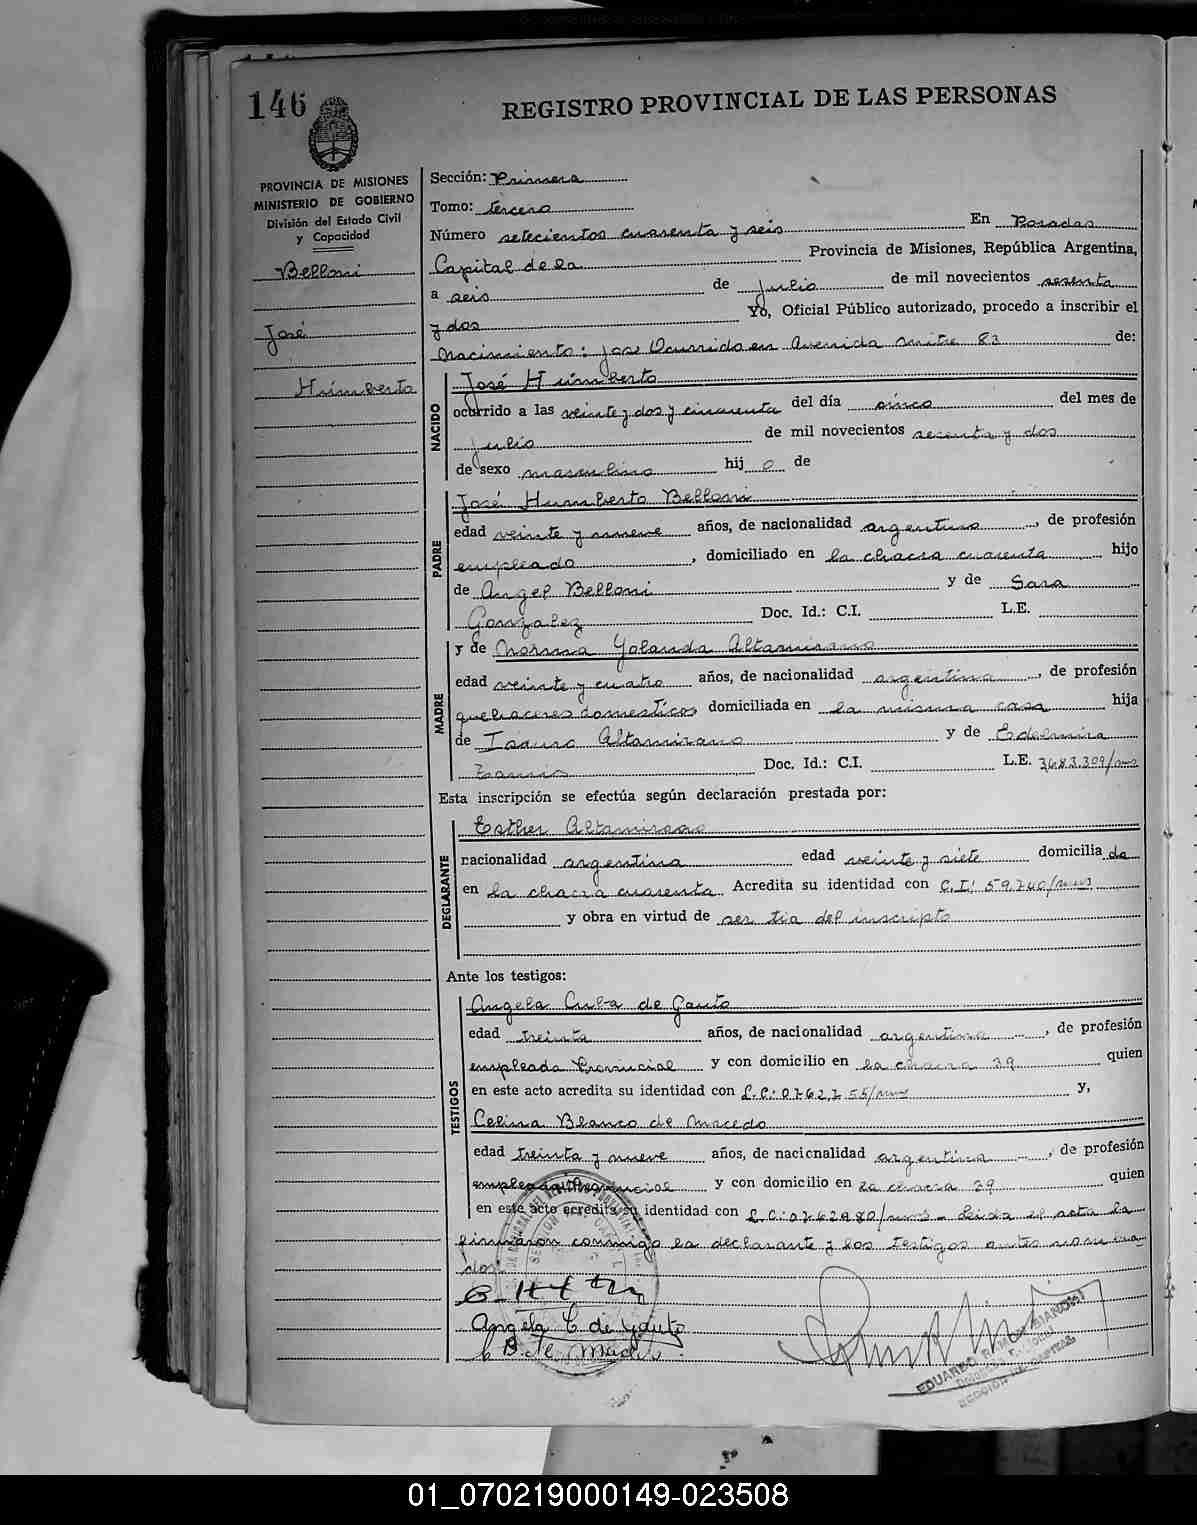 146
REGISTRO PROVINCIAL DE LAS PERSONAS
PROVINCIA DE MISIONES
MINISTERIO DE GOBIERNO
División del Estado Civil
y Capacidad
Belloni
José
Humberto
Sección: Primera
Tomo: tercero
Número setecientos cuarenta y seis En Posadas
Capital de la Provincia de Misiones, República Argentina,
a seis de julio de mil novecientos sesenta
y dos Yo, Oficial Público autorizado, procedo a inscribir el
Nacimiento: Ocurrido en Avenida Mitre 83 de:
NACIDO
José Humberto
ocurrido a las veinte y dos y cincuenta del día cinco del mes de
julio de mil novecientos sesenta y dos
de sexo masculino hij o de
PADRE
José Humberto Belloni
edad veinte y nueve años, de nacionalidad argentino, de profesión
empleado, domiciliado en la chacra cuarenta hijo
de Angel Belloni y de Sara
Gonzalez Doc. Id.: C.I. L.E.
MADRE
y de Norma Yolanda Altamirano
edad veinte y cuatro años, de nacionalidad argentina, de profesión
quehaceres domesticos domiciliada en la misma casa hija
de Isauro Altamirano y de Edelmira
Doc. Id.: C.I. L.E. 3.683.309/mns
Esta inscripción se efectúa según declaración prestada por:
DECLARANTE
Esther Altamirano
nacionalidad argentina edad veinte y siete domicilia da
en la chacra cuarenta Acredita su identidad con C.I: 59.740/mns
y obra en virtud de ser tia del inscripto
Ante los testigos:
TESTIGOS
Angela Cuba de Gauto
edad treinta años, de nacionalidad argentina, de profesión
empleada Provincial y con domicilio en la chacra 39 quien
en este acto acredita su identidad con L.C: y,
Celina Blanco de Macedo
edad treinta y nueve años, de nacionalidad argentina, de profesión
empleada Provincial y con domicilio en la chacra 39 quien
en este acto acredita su identidad con L.C: Leida el acta la
firmaron conmigo la declarante y los testigos antes nomina-
dos.
Angela C de Gauto
EDUARDO
01_070219000149-023508